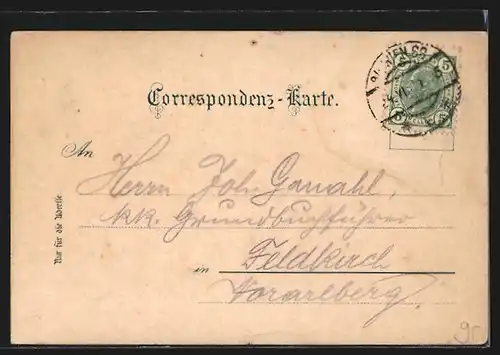 Correspondenz-Karte.
5 5
5 5
An
Herrn Joh. Ganahl,
k.k. Grundbuchführer
in Feldkirch
Vorarlberg.
Nur für die Adresse